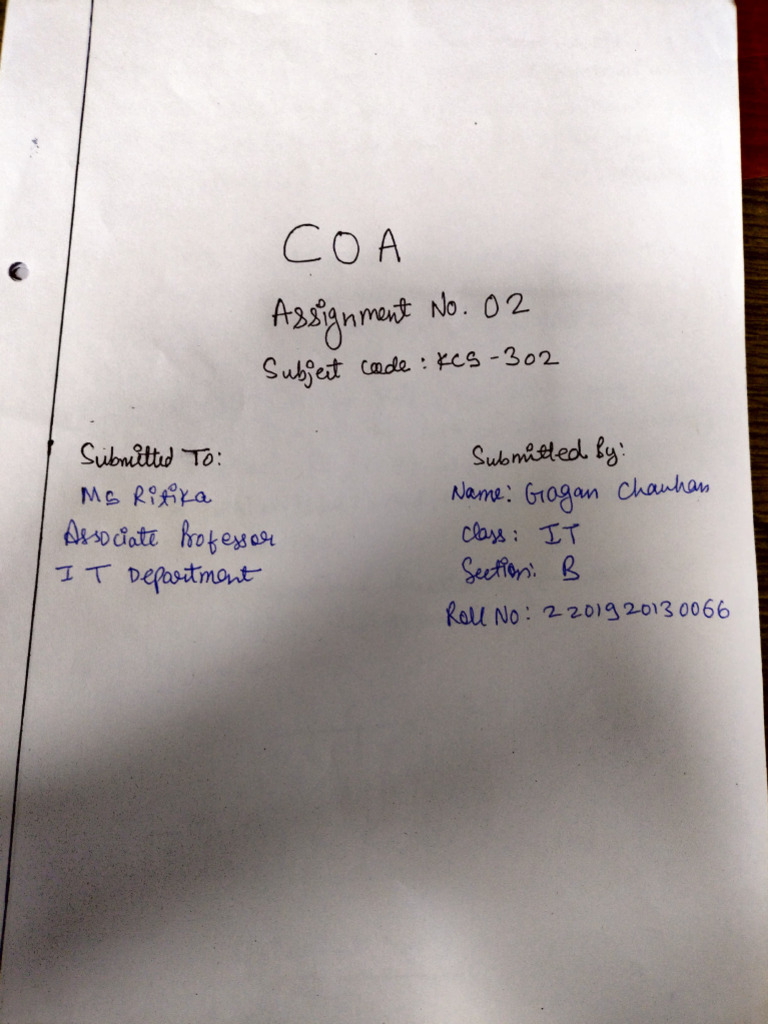 COA
Assignment No. 02
Subject code: KCS-302
Submitted To:
Ms Ritika
Associate Professor
IT Department
Submitted By:
Name: Gagan Chauhan
Class: IT
Section: B
Roll No: 2201920130066